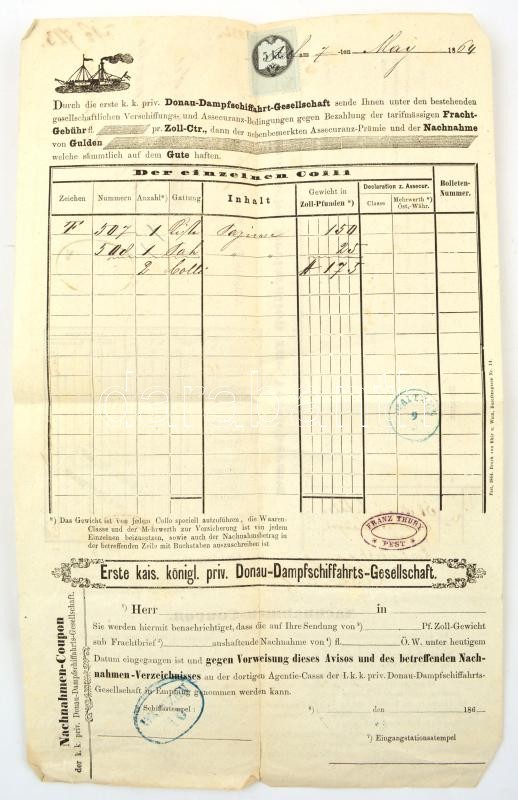 5
am 7-ten May 1864
Durch die erste k. k. priv. Donau-Dampfschiffahrt-Gesellschaft sende Ihnen unter den bestehenden
gesellschaftlichen Verschiffungs- und Assecuranz-Bedingungen gegen Bezahlung der tarifmässigen Fracht-
Gebühr fl. pr. Zoll-Ctr., dann der nebenbemerkten Assecuranz-Prämie und der Nachnahme
von Gulden
welche sämmtlich auf dem Gute haften.
Der einzelnen Colli
Zeichen Nummern Anzahl*) Gattung Inhalt Gewicht in Zoll-Pfunden*) Declaration z. Assecur. Classe Mehrwerth*) Öst.-Währ. Bolleten-Nummer.
F 507 1 150
508 1 " " 25
2 Colli 175
WAITZEN
9
*) Das Gewicht ist von jedem Collo speciell aufzuführen, die Waaren-
Classe und der Mehrwerth zur Versicherung ist von jedem
Einzelnen beizusetzen, sowie auch der Nachnahmsbetrag in
der betreffenden Zeile mit Buchstaben auszuschreiben ist
FRANZ THURY
PEST
Erste kais. königl. priv. Donau-Dampfschiffahrts-Gesellschaft.
Nachnahmen-Coupon
der k. k. priv. Donau-Dampfschiffahrts-Gesellschaft.
¹) Herr in
Sie werden hiermit benachrichtiget, dass die auf Ihre Sendung von ²) Pf. Zoll-Gewicht
sub Frachtbrief ³) aushaftende Nachnahme von ⁴) fl. Ö. W. unter heutigem
Datum eingegangen ist und gegen Vorweisung dieses Avisos und des betreffenden Nach-
nahmen-Verzeichnisses an der dortigen Agentie-Cassa der I. k. k. priv. Donau-Dampfschiffahrts-
Gesellschaft in Empfang genommen werden kann.
Schiffsstempel:
den 186
⁷) Eingangsstationsstempel